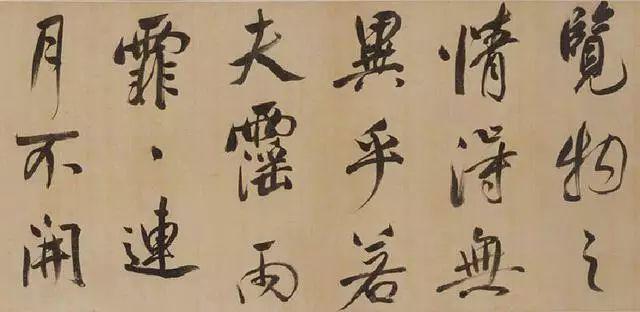 覽物之
情得無
異乎若
夫霪雨
霏、連
月不開